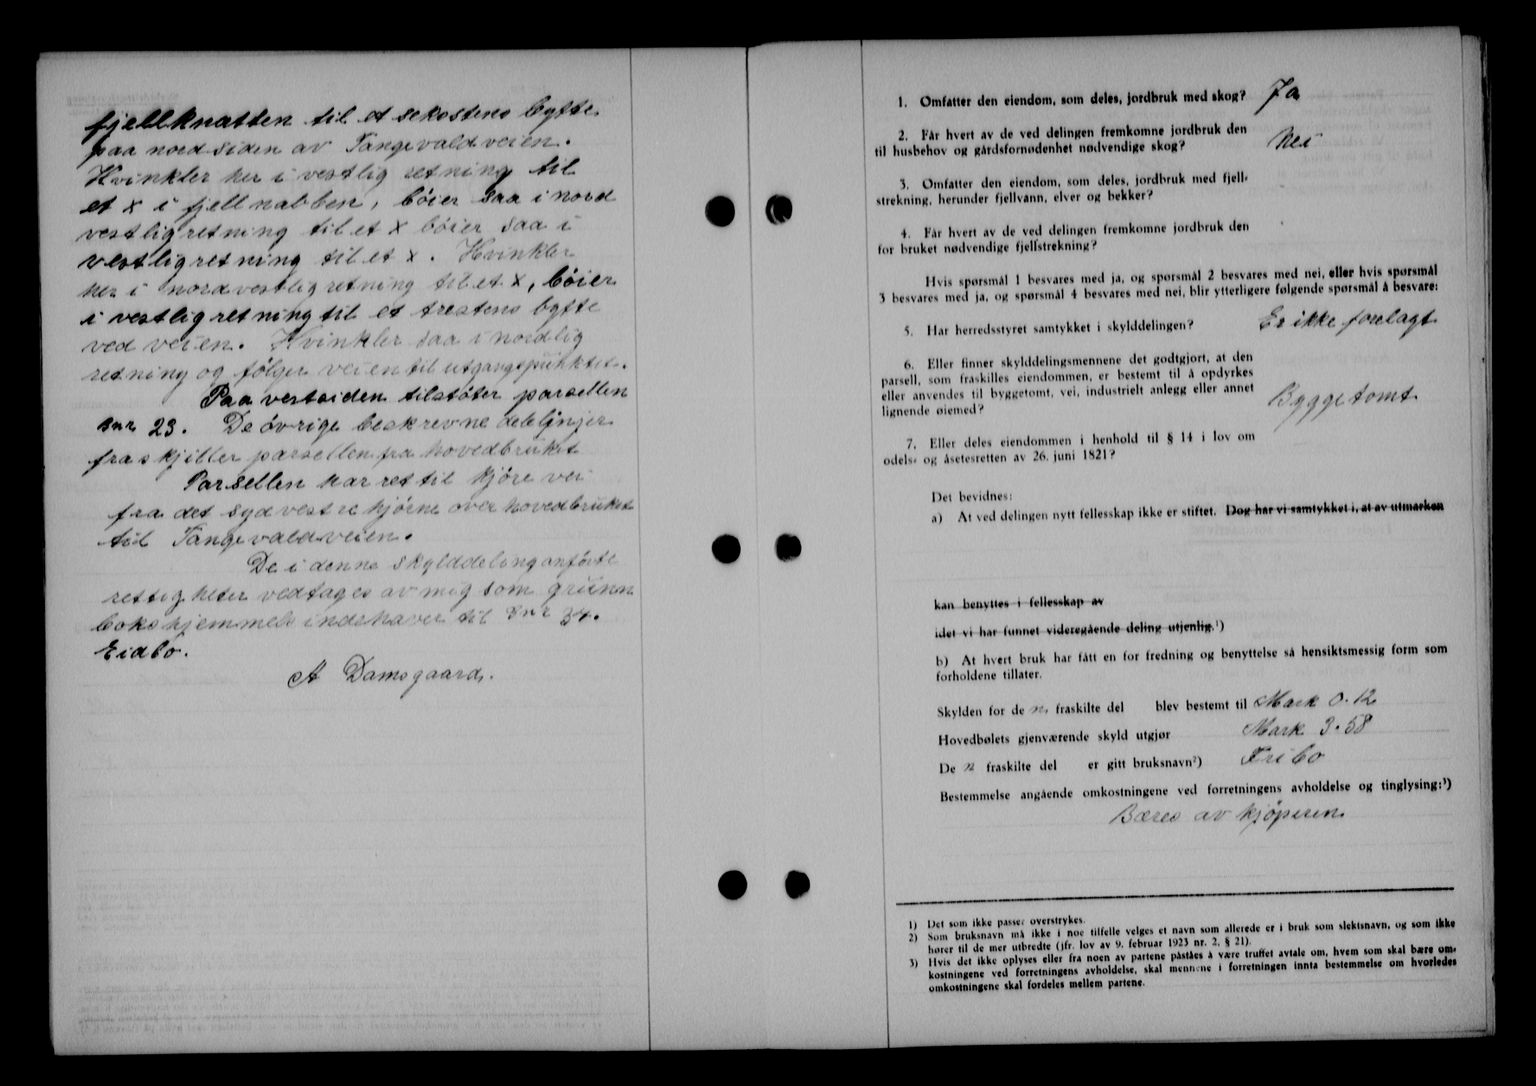 fjellknatten til et sekstens bytte
paa nordsiden av Tangevaldveien.
Hvinkler her i vestlig retning til
et x i fjellnabben, böier saa i nord
vestlig retning til et x böier saa i
vestlig retning til et x. Hvinkler
her i nordvestlig retning til et x, böier
i vestlig retning til et trestens bytte
ved veien. Hvinkler saa i nordlig
retning og følger veien til utgangspunktet.
Paa vestsiden tilstøter parsellen
bnr 23. De øvrige beskrevne delelinjer
fraskjiller parsellen fra hovedbruket
Parsellen har ret til kjöre vei
fra det sydvestre hjørne over hovedbruket
til Tangevaldveien.
De i denne skylddeling anførte
rettigheter vedtages av mig som grunn
bokshjemmels indehaver til bnr 34.
Eidbo.
A Damsgaard.
1. Omfatter den eiendom, som deles, jordbruk med skog? Ja
2. Får hvert av de ved delingen fremkomne jordbruk den
til husbehov og gårdsfornødenhet nødvendige skog? Nei
3. Omfatter den eiendom, som deles, jordbruk med fjell-
strekning, herunder fjellvann, elver og bekker?
4. Får hvert av de ved delingen fremkomne jordbruk den
for bruket nødvendige fjellstrekning?
Hvis spørsmål 1 besvares med ja, og spørsmål 2 besvares med nei, eller hvis spørsmål
3 besvares med ja, og spørsmål 4 besvares med nei, blir ytterligere følgende spørsmål å besvare:
5. Har herredsstyret samtykket i skylddelingen? Er ikke forelagt
6. Eller finner skylddelingsmennene det godtgjort, at den
parsell, som fraskilles eiendommen, er bestemt til å opdyrkes
eller anvendes til byggetomt, vei, industrielt anlegg eller annet
lignende øiemed? Byggetomt
7. Eller deles eiendommen i henhold til § 14 i lov om
odels- og åsetesretten av 26. juni 1821?
Det bevidnes:
a) At ved delingen nytt fellesskap ikke er stiftet. Dog har vi samtykket i, at av utmarken
kan benyttes i fellesskap av
idet vi har funnet videregående deling utjenlig.¹)
b) At hvert bruk har fått en for fredning og benyttelse så hensiktsmessig form som
forholdene tillater.
Skylden for de n fraskilte del blev bestemt til Mark 0.12
Hovedbølets gjenværende skyld utgjør Mark 3.58
De n fraskilte del er gitt bruksnavn²) Fribo
Bestemmelse angående omkostningene ved forretningens avholdelse og tinglysing:³)
Bæres av kjøperen
1) Det som ikke passer overstrykes.
2) Som bruksnavn må ikke i noe tilfelle velges et navn som allerede er i bruk som slektsnavn, og som ikke
hører til de mer utbredte (jfr. lov av 9. februar 1923 nr. 2, § 21).
3) Hvis det ikke oplyses eller fra noen av partene påståes å være truffet avtale om, hvem som skal bære om-
kostningene ved forretningens avholdelse, skal mennene i forretningen innta bestemmelse om hvorledes
omkostningene skal fordeles mellem partene.